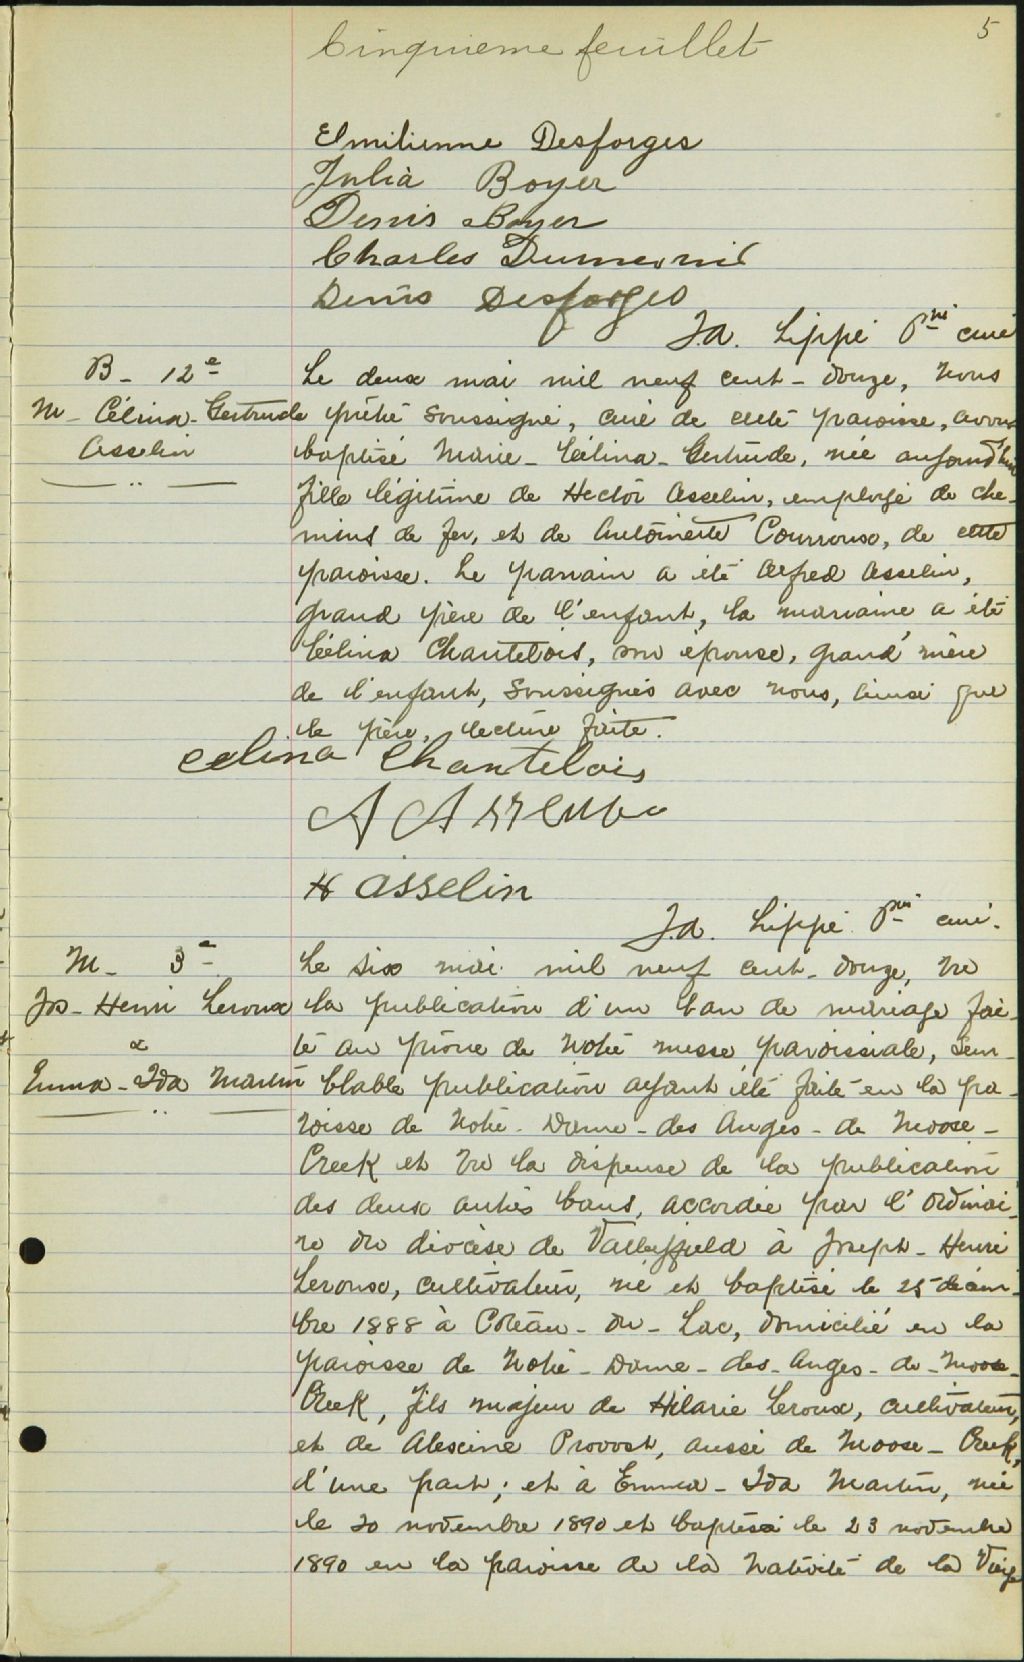 5
Cinquieme feuillet
Emilienne Desforges
Julia Boyer
Denis Boyer
Charles Dumesnil
Denis Desforges
J.A. Lippé Ptre curé
B - 12e
M - Célina - Gertrude
Asselin
Le deux mai mil neuf cent - douze, nous
prêtre soussigné, curé de cette paroisse, avons
baptisé Marie - Célina - Gertrude, née aujourd'hui
fille légitime de Hector Asselin, employé de che-
mins de fer, et de Antoinette Courroux, de cette
paroisse. Le parrain a été Alfred Asselin,
grand père de l'enfant, la marraine a été
Célina Chantelois, son épouse, grand'mère
de l'enfant, soussignés avec nous, ainsi que
le père, lecture faite.
Celina Chantelois
A Asselin
H Asselin
J.A. Lippé Ptre curé.
M - 3e
Jos - Henri Leroux
&
Emma - Ida Martin
Le six mai mil neuf cent - douze, vu
la publication d'un ban de mariage fai-
te au prône de notre messe paroissiale, sem-
blable publication ayant été faite en la pa-
roisse de Notre - Dame - des Anges - de Moose -
Creek et vu la dispense de la publication
des deux autres bans, accordée par l'Ordinai-
re du diocèse de Valleyfield à Joseph - Henri
Leroux, cultivateur, né et baptisé le 25 décem-
bre 1888 à Côteau - du - Lac, domicilié en la
paroisse de Notre - Dame - des - Anges - de - Moose -
Creek, fils majeur de Hilarie Leroux, cultivateur,
et de Alexine Provost, aussi de Moose - Creek,
d'une part ; et à Emma - Ida Martin, née
le 20 novembre 1890 et baptisée le 23 novembre
1890 en la paroisse de la Nativité de la Vierge